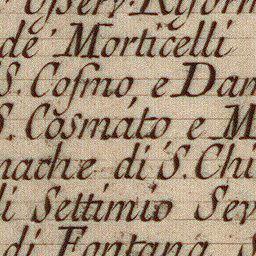 Osserv. Riform
de' Morticelli
S. Cosmo, e Dam
S. Cosmato e M
nache di S. Chi
li Settimio Sev
di Fontana S